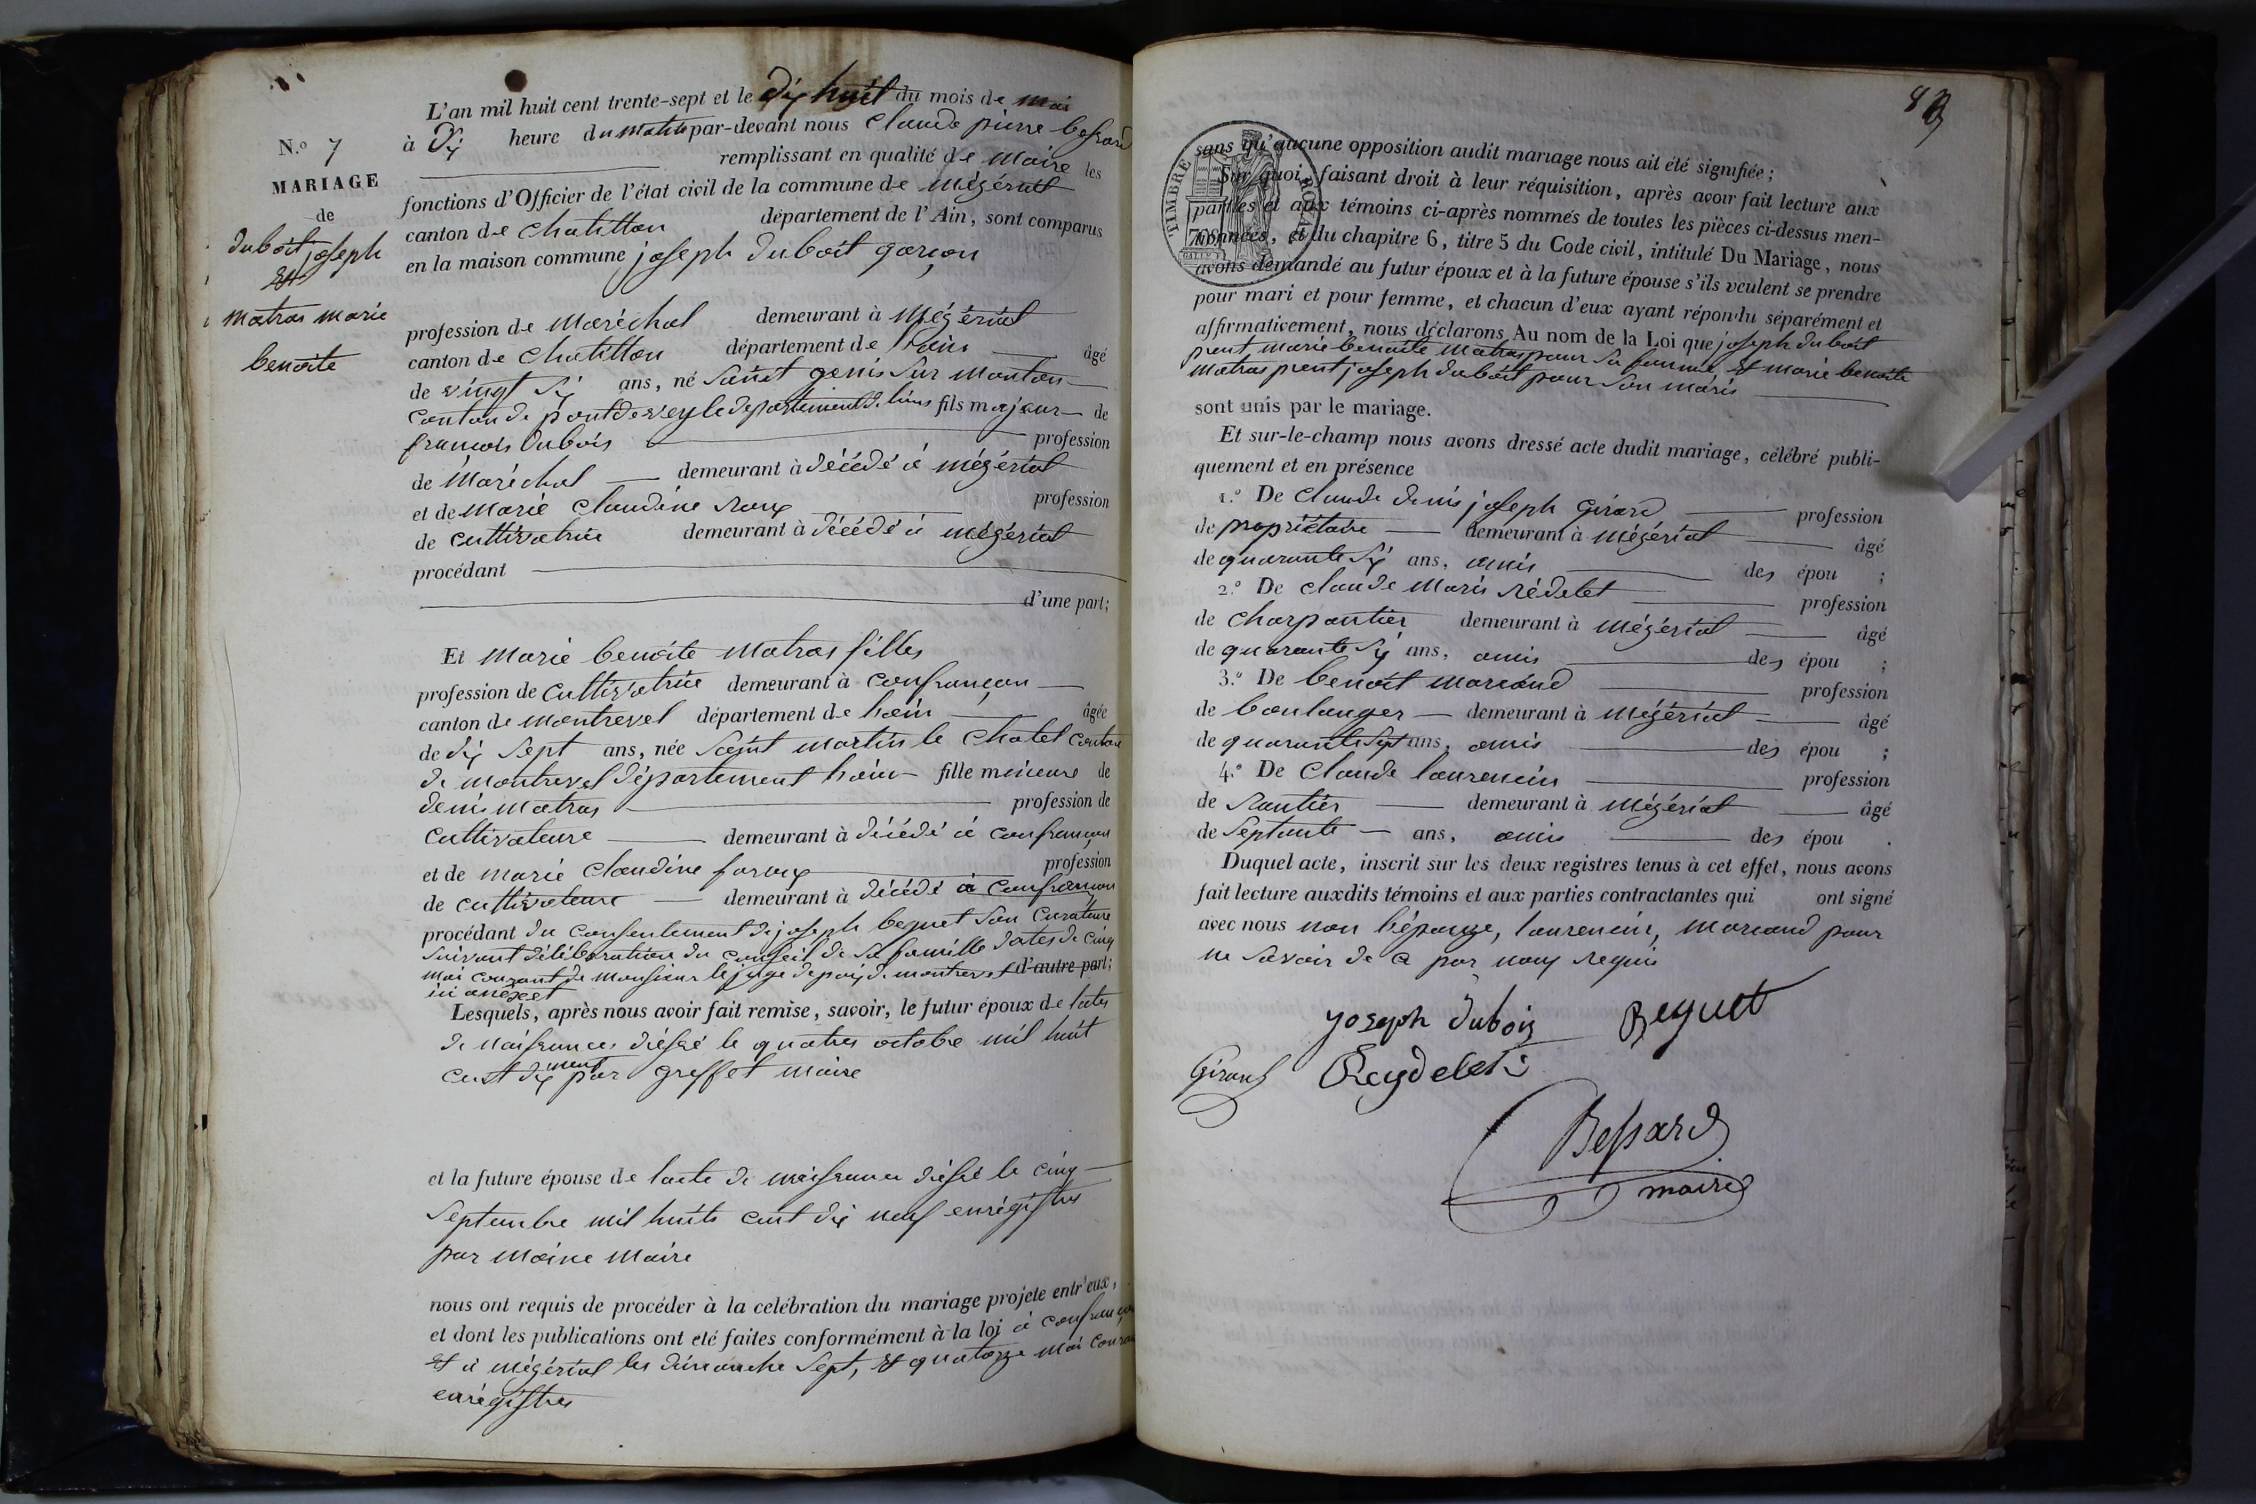 L'an mil huit cent trente-sept et le dix huit du mois de mai
à Dix heure du matin par-devant nous claude pierre bessard
remplissant en qualité de maire les
fonctions d'Officier de l'état civil de la commune de mézériat
canton de chatillon département de l'Ain, sont comparus
en la maison commune joseph duboit garçon
N.o 7
MARIAGE
de
duboit joseph
Et
matras marie
benoite
profession de maréchal demeurant à Mézériat
canton de chatillon département de lain âgé
de vingt six ans, né Saint genis Sur Menton
canton de pont de veyle département de lains fils majeur de
francois Dubois profession
de maréchal demeurant à décédé à mézériat
et de marie claudine roux profession
de cultivatrice demeurant à décédé à mézériat
procédant
d'une part;
Et marie benoite matras filles
profession de cultivatrice demeurant à confrançon
canton de montrevel département de hain âgée
de dix sept ans, née Saint martin le chatel canton
de montrevel département hain fille mineure de
denis matras profession de
cultivateure demeurant à décédé à confrançon
et de marie claudine faroux profession
de cultivateure demeurant à décédé à confrançon
procédant du consentement de joseph bequet Son Curateure
Suivant délébération du conseil de Sa famille dates de cinq
mai courant de monsieur le juge de paix de montrevel d'autre part;
ici anéxeet
Lesquels, après nous avoir fait remise, savoir, le futur époux de lates
de naissances dréssé le quatres octobre mil huit
cent dix par greffet maire
et la future épouse de lacte de naissance dréssé le cinq
Septembre mil huits cent dix neuf enrégistres
par moine maire
nous ont requis de procéder à la celébration du mariage projete entr'eux,
et dont les publications ont eté faites conformément à la loi à confrançon
et à mézériat les dimanche Sept, et quatorze mai courant
enrégistres
8
TIMBRE ROYAL
sans qu'aucune opposition audit mariage nous ait été signifiée;
Sur quoi, faisant droit à leur réquisition, après avoir fait lecture aux
parties et aux témoins ci-après nommés de toutes les pièces ci-dessus men-
tionnées, et du chapitre 6, titre 5 du Code civil, intitulé Du Mariage, nous
avons demandé au futur époux et à la future épouse s'ils veulent se prendre
pour mari et pour femme, et chacun d'eux ayant répondu séparément et
affirmativement, nous déclarons Au nom de la Loi que joseph duboit
prent marie benoite matras pour Sa femme, Et marie benoite
matras prent joseph duboit pour Son maris
sont unis par le mariage.
Et sur-le-champ nous avons dressé acte dudit mariage, célébré publi-
quement et en présence
1.o De Claude denis joseph Girard profession
de propriétaire demeurant à mézériat âgé
de quarante Six ans, amis des épou ;
2.o De claude Maris rédelet profession
de charpantier demeurant à mézériat âgé
de quarante Six ans, amis des épou ;
3.o De benoit marcand profession
de boulanger demeurant à mézériat âgé
de quarante Sept ans, amis des épou ;
4.o De Claude laurencin profession
de rantier demeurant à mézériat âgé
de Septante ans, amis des épou .
Duquel acte, inscrit sur les deux registres tenus à cet effet, nous avons
fait lecture auxdits témoins et aux parties contractantes qui ont signé
avec nous non l'épouze, laurencin, marcand pour
ne Savoir de ce par nous requis
joseph dubois Bequet
Girard Reydelet
Bessard
maire